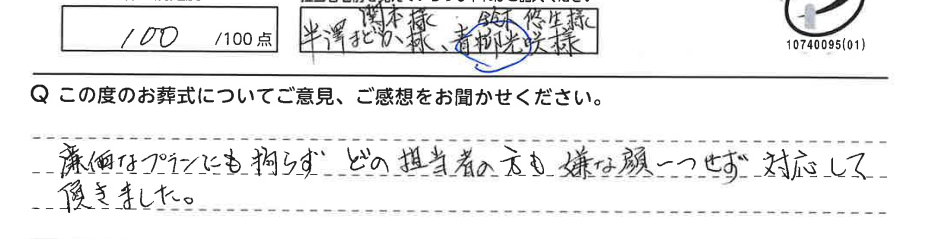 100 /100点
関本様、鈴木 悠生様
半澤まどか様、青柳光咲様
10740095(01)
Q この度のお葬式についてご意見、ご感想をお聞かせください。
廉価なプランにも拘らず どの担当者の方も 嫌な顔一つせず 対応して
頂きました。